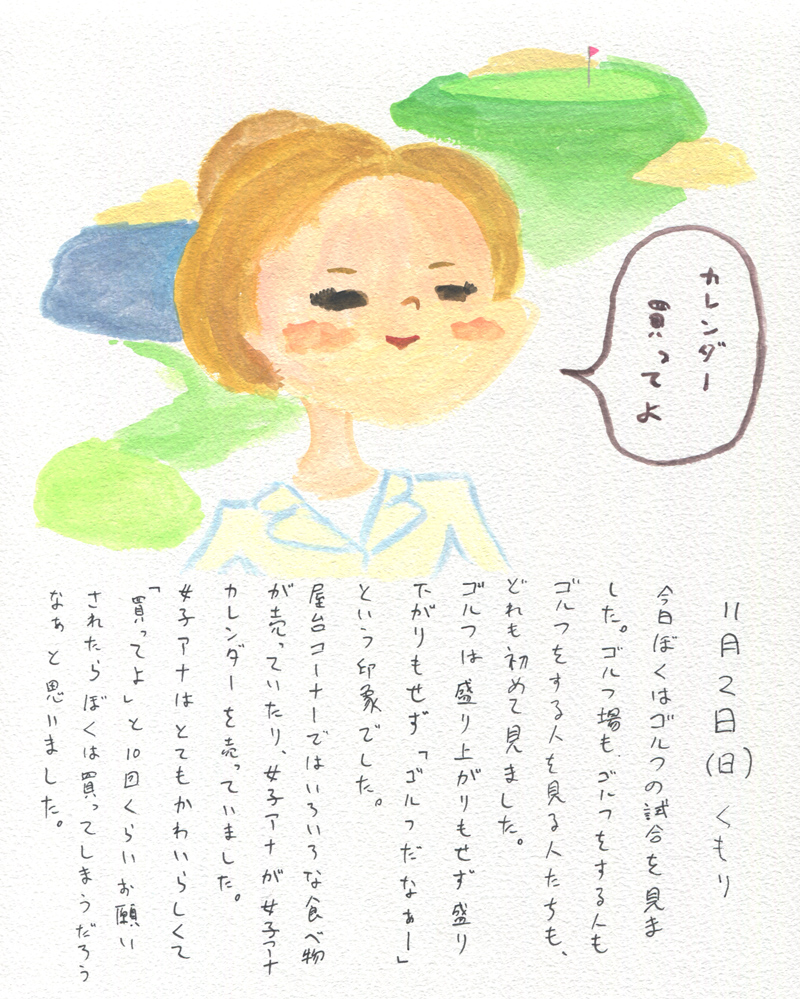 カレンダー
買ってよ
11月2日(日) くもり
今日ぼくはゴルフの試合を見ま
した。ゴルフ場も、ゴルフをする人も
ゴルフをする人を見る人たちも、
どれも初めて見ました。
ゴルフは盛り上がりもせず盛り
下がりもせず「ゴルフだなぁー」
という印象でした。
屋台コーナーではいろいろな食べ物
が売っていたり、女子アナが女子アナ
カレンダーを売っていました。
女子アナはとてもかわいらしくて
「買ってよ」と10回くらいお願い
されたらぼくは買ってしまうだろう
なぁと思いました。